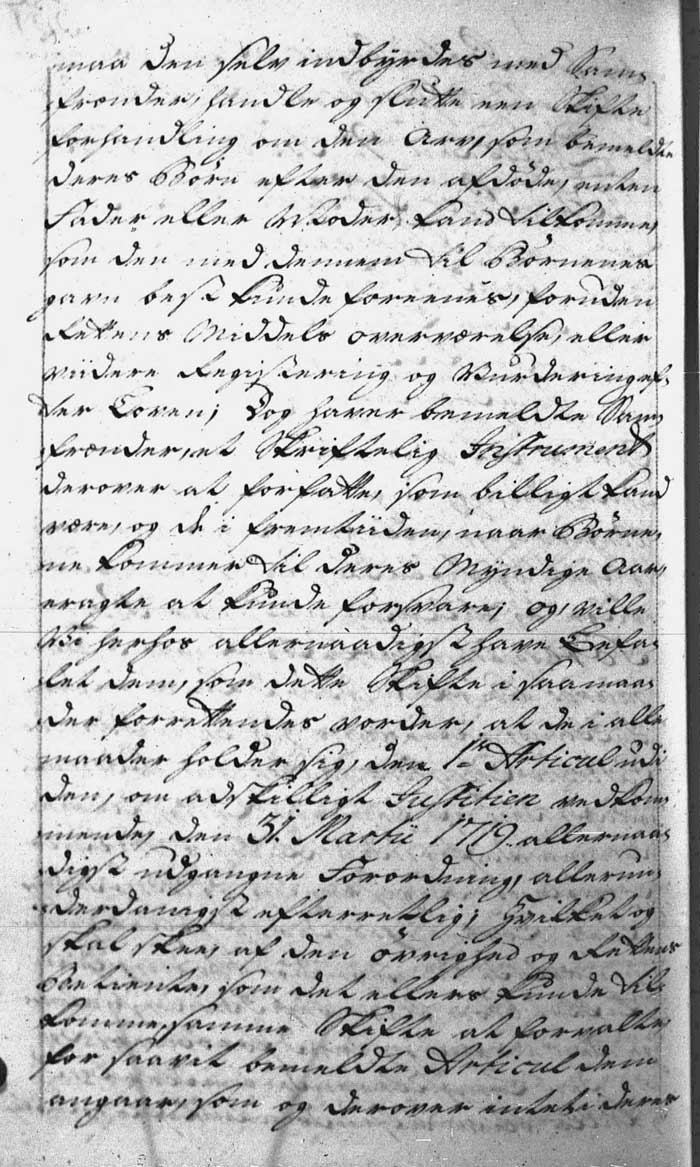 maa den selv indbyrdes med Sam,
frænder, handle og slutte een Skifte
forhandling om den Arv, som bemeldte
deres Børn efter den afdøde, enten
Fader eller Moder, kand tilkomme,
som den med dennem til Børnenes
gavn best kunde foreenes, foruden
Rettens Middels overværelse, eller
viidere Registering og Vurdering ef,
ter Loven; Dog haver bemeldte Sam,
frænder, et Skriftelig Instrument
derover at forfatte, som billigt kand
være, og de i fremtiiden, naar Børne,
ne kommer til deres Myndige Aar,
eragte at kunde forsvare; og, ville
Vi herhos allernaadigst have Befa,
let dem, som dette Skifte i saamaa,
der forrettendes vorder, at de i alle
maader holder sig, den 1te Articul udi
den, om adskilligt Justitien vedkom,
mende, den 31. Martii 1719. allernaa,
digst udgangne Forordning, allerun,
derdanigst efterretlig; Hvilket og
skal skee, af den øvrighed og Rettens
Betiente, som det ellers kunde til,
komme, samme Skifte at forvalte,
for saavit bemeldte Articul dem
angaar, som og derover intet i deres